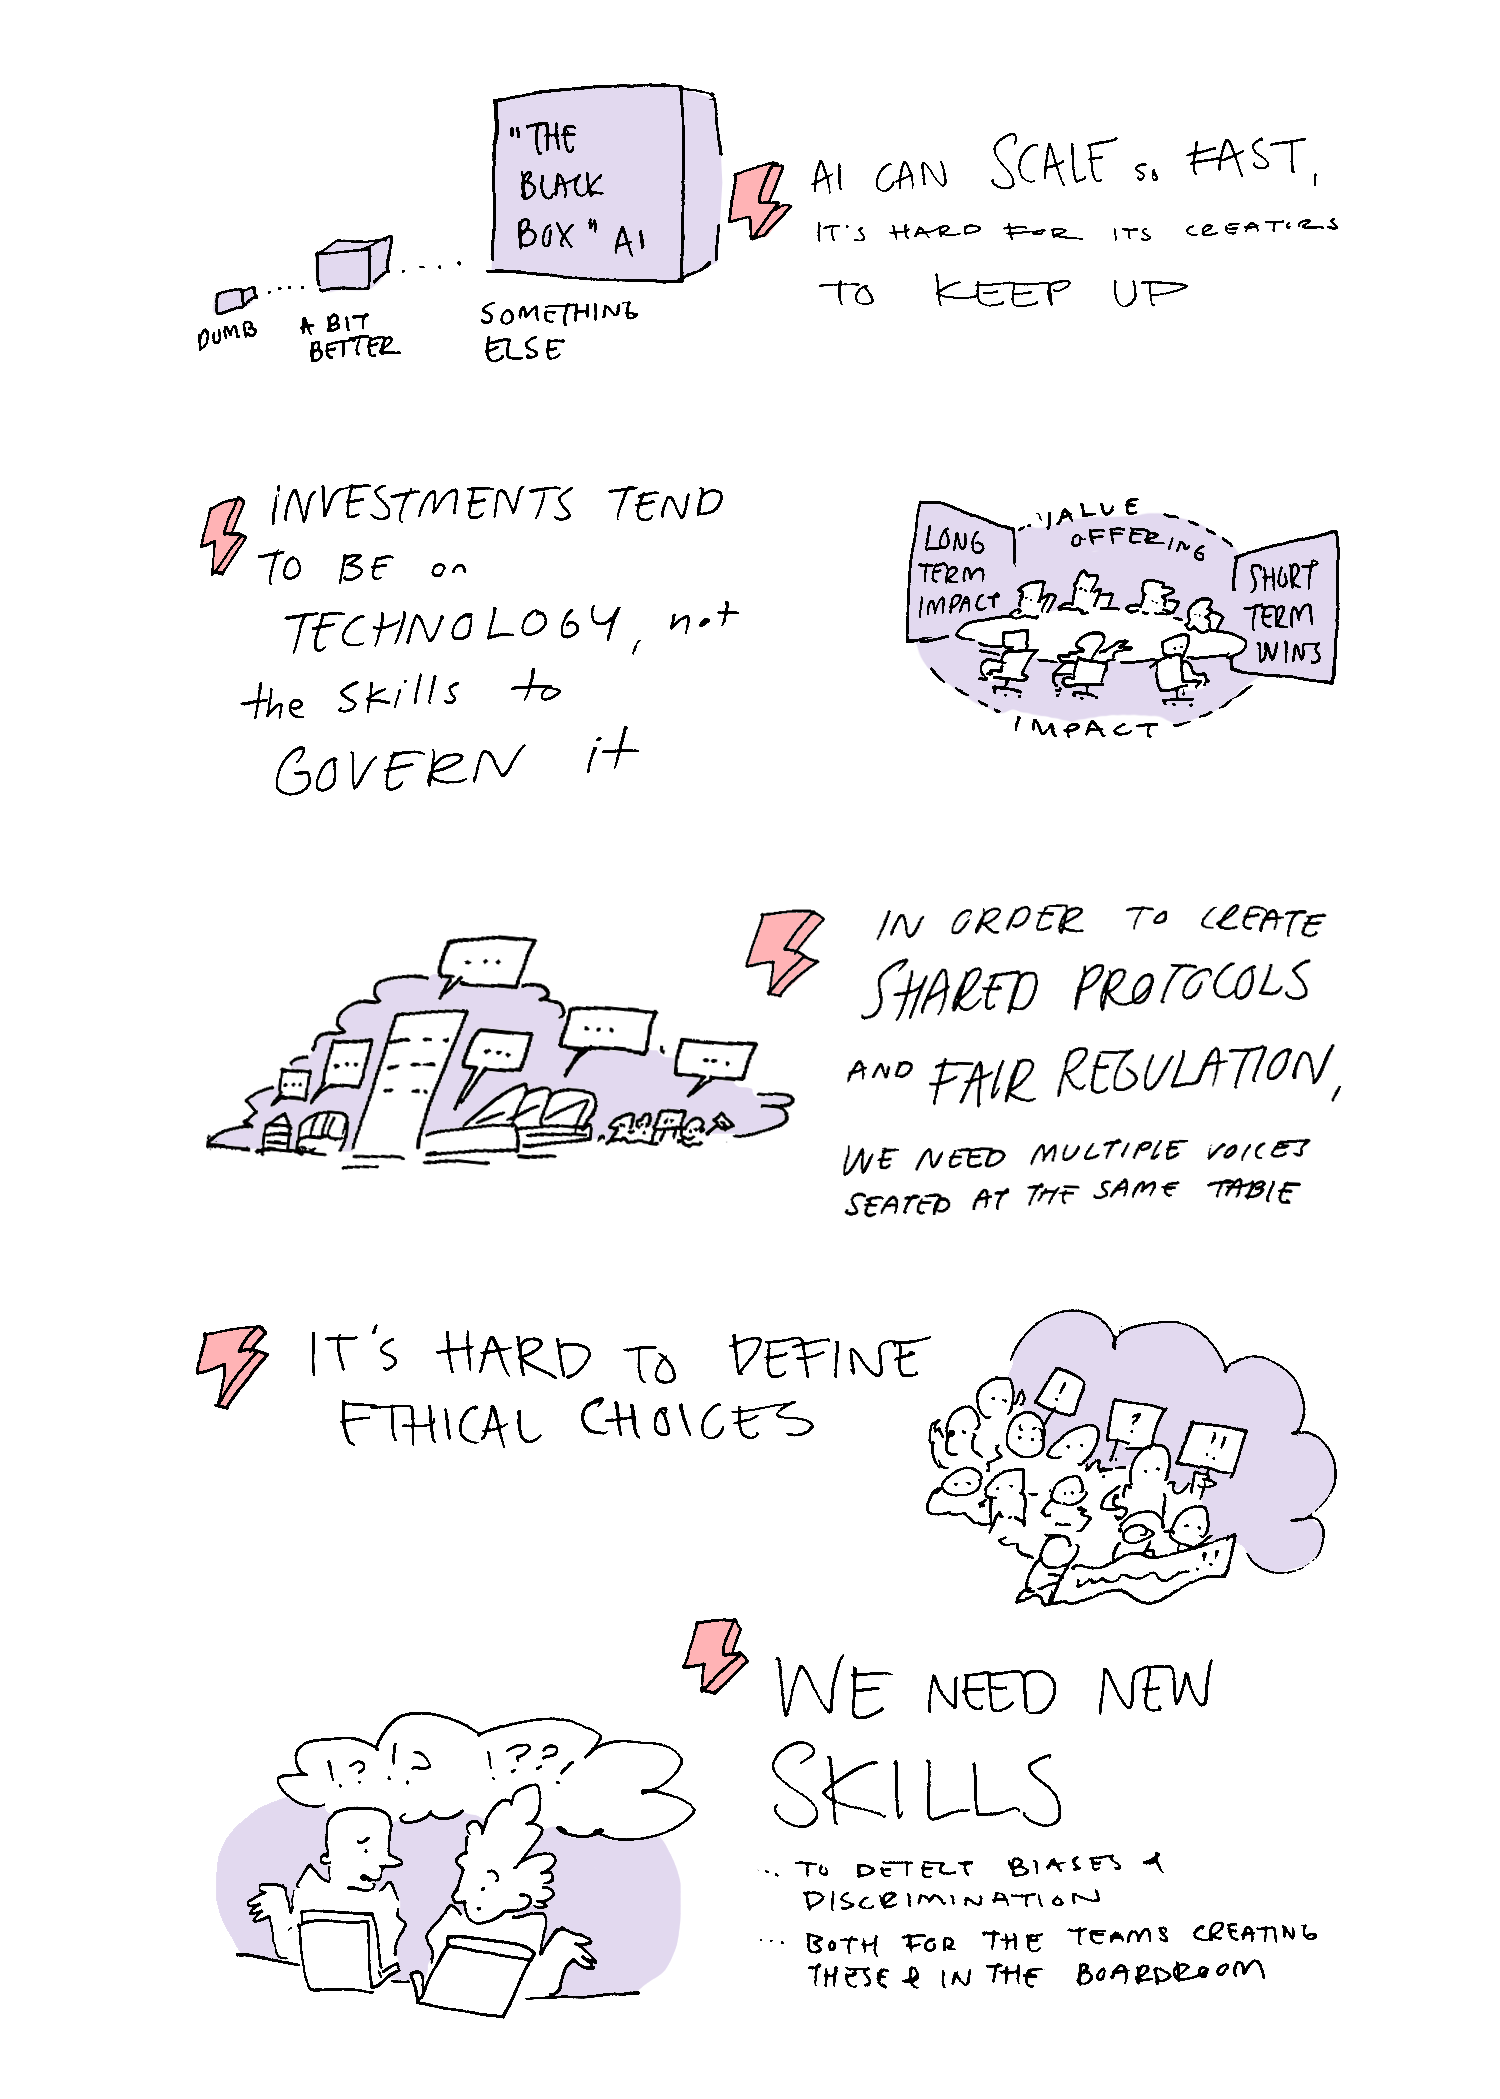 "THE
BLACK
BOX" AI
DUMB
A BIT
BETTER
SOMETHING
ELSE
AI CAN SCALE SO FAST,
IT'S HARD FOR ITS CREATORS
TO KEEP UP
INVESTMENTS TEND
TO BE on
TECHNOLOGY, not
the skills to
GOVERN it
VALUE
OFFERING
LONG
TERM
IMPACT
SHORT
TERM
WINS
IMPACT
...
...
...
...
...
...
IN ORDER TO CREATE
SHARED PROTOCOLS
AND FAIR REGULATION,
WE NEED MULTIPLE VOICES
SEATED AT THE SAME TABLE
IT'S HARD TO DEFINE
ETHICAL CHOICES
!
?
!!
!!
WE NEED NEW
SKILLS
.. TO DETECT BIASES &
DISCRIMINATION
... BOTH FOR THE TEAMS CREATING
THESE & IN THE BOARDROOM
!?!? !??!